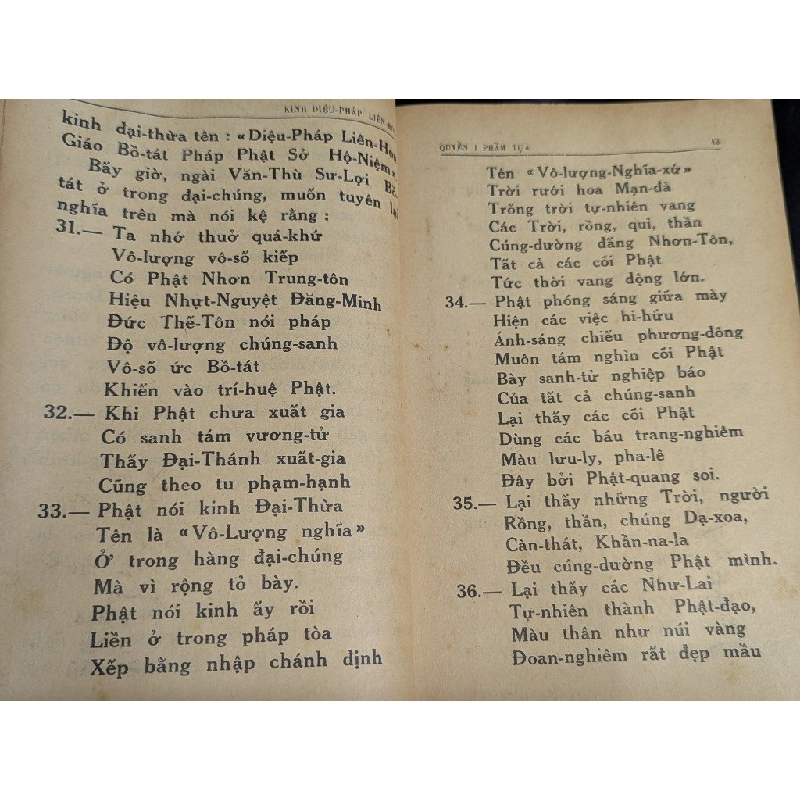 KINH DIỆU-PHÁP LIÊN
kinh đại-thừa tên : «Diệu-Pháp Liên-Hoa
Giáo Bồ-tát Pháp Phật Sở Hộ-Niệm»
Bấy giờ, ngài Văn-Thù Sư-Lợi Bồ
tát ở trong đại-chúng, muốn tuyên lại
nghĩa trên mà nói kệ rằng :
31.— Ta nhớ thuở quá-khứ
Vô-lượng vô-số kiếp
Có Phật Nhơn Trung-tôn
Hiệu Nhựt-Nguyệt Đăng-Minh
Đức Thế-Tôn nói pháp
Độ vô-lượng chúng-sanh
Vô-số ức Bồ-tát
Khiến vào trí-huệ Phật.
32.— Khi Phật chưa xuất gia
Có sanh tám vương-tử
Thấy Đại-Thánh xuất-gia
Cũng theo tu phạm-hạnh
33.— Phật nói kinh Đại-Thừa
Tên là «Vô-Lượng nghĩa»
Ở trong hàng đại-chúng
Mà vì rộng tỏ bày.
Phật nói kinh ấy rồi
Liền ở trong pháp tòa
Xếp bằng nhập chánh định
QUYỂN I PHẨM TỰA
Tên «Vô-lượng-Nghĩa-xứ»
Trời rưới hoa Mạn-đà
Trống trời tự-nhiên vang
Các Trời, rồng, qui, thần
Cúng-dường đấng Nhơn-Tôn,
Tất cả các cõi Phật
Tức thời vang động lớn.
34.— Phật phóng sáng giữa mày
Hiện các việc hi-hữu
Ánh-sáng chiếu phương-đông
Muôn tám nghìn cõi Phật
Bày sanh-tử nghiệp báo
Của tất cả chúng-sanh
Lại thấy các cõi Phật
Dùng các báu trang-nghiêm
Màu lưu-ly, pha-lê
Đây bởi Phật-quang soi.
35.— Lại thấy những Trời, người
Rồng, thần, chúng Dạ-xoa,
Càn-thát, Khẩn-na-la
Đều cúng-dường Phật mình.
36.— Lại thấy các Như-Lai
Tự-nhiên thành Phật-đạo,
Màu thân như núi vàng
Đoan-nghiêm rất đẹp mầu